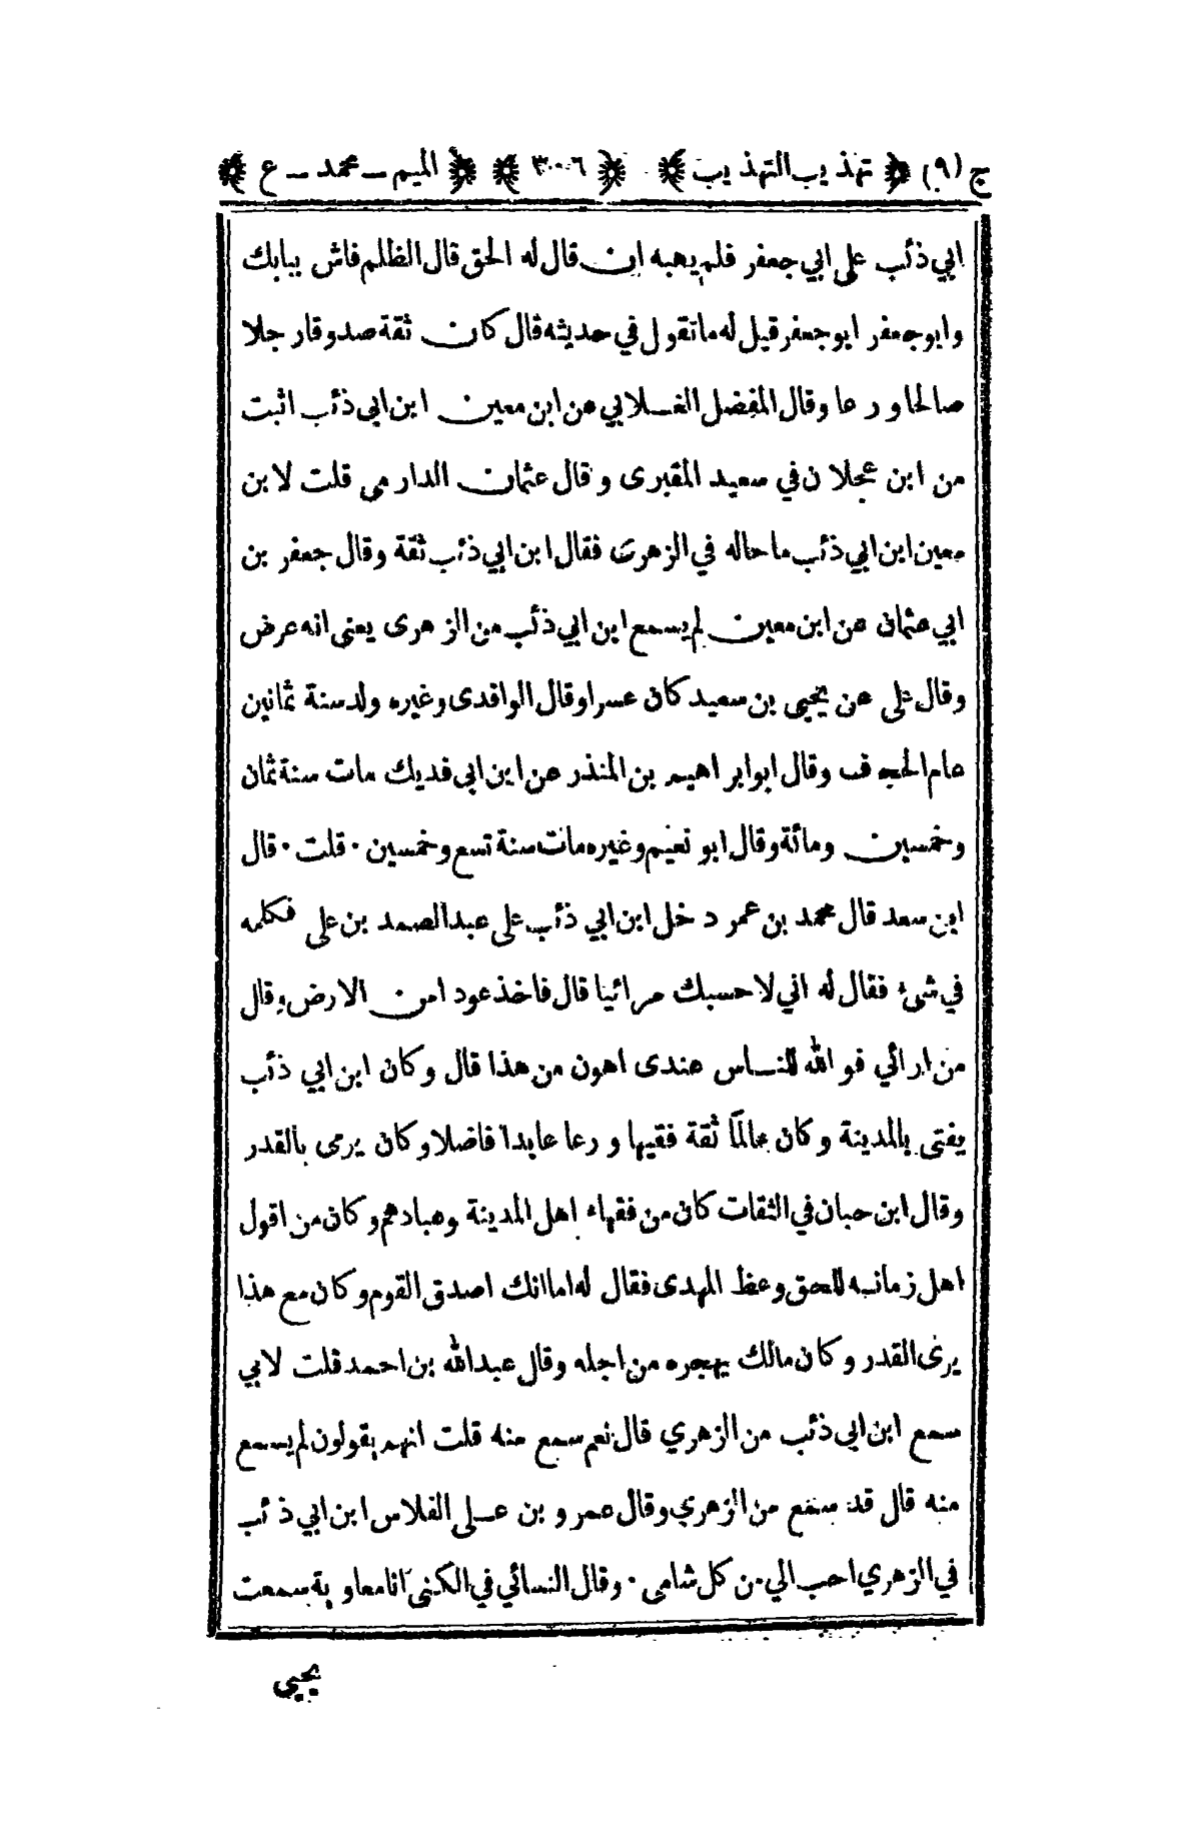 ج (٩) تهذيب التهذيب ٣٠٦ الميم ــ محمد ــ ع
ابي ذئب على ابي جعفر فلم يهبه ان قال له الحق قال الظلم فاش ببابك
وابو جعفر ابو جعفر قيل له ما تقول في حديثه قال كان ثقة صدوقا رجلا
صالحا ورعا وقال المفضل الغلابي عن ابن معين ابن ابي ذئب اثبت
من ابن عجلان في سعيد المقبرى وقال عثمان الدارمي قلت لابن
معين ابن ابي ذئب ما حاله في الزهرى فقال ابن ابي ذئب ثقة وقال جعفر بن
ابي عثمان عن ابن معين لم يسمع ابن ابي ذئب من الزهرى يعني انه عرض
وقال على عن يحيى بن سعيد كان عسرا وقال الواقدى وغيره ولد سنة ثمانين
عام الجحاف وقال ابو ابراهيم بن المنذر عن ابن ابي فديك مات سنة ثمان
وخمسين ومائة وقال ابو نعيم وغيره مات سنة تسع وخمسين ٠ قلت ٠ قال
ابن سعد قال محمد بن عمر دخل ابن ابي ذئب على عبد الصمد بن على فكلمه
في شىء فقال له اني لاحسبك مرائيا قال فاخذ عودا من الارض وقال
من ارائي فو الله للناس عندى اهون من هذا قال وكان ابن ابي ذئب
يفتى بالمدينة وكان عالمًا ثقة فقيها ورعا عابدا فاضلا وكان يرمى بالقدر
وقال ابن حبان في الثقات كان من فقهاء اهل المدينة وعبادهم وكان من اقول
اهل زمانه للحق وعظ المهدى فقال له اما انك اصدق القوم وكان مع هذا
يرى القدر وكان مالك يهجره من اجله وقال عبد الله بن احمد قلت لابي
سمع ابن ابي ذئب من الزهري قال نعم سمع منه قلت انهم يقولون لم يسمع
منه قال قد سمع من الزهري وقال عمرو بن عــلى الفلاس ابن ابي ذئب
في الزهري احب الي من كل شامى ٠ وقال النسائي في الكنى انا معاوية سمعت
يحيى